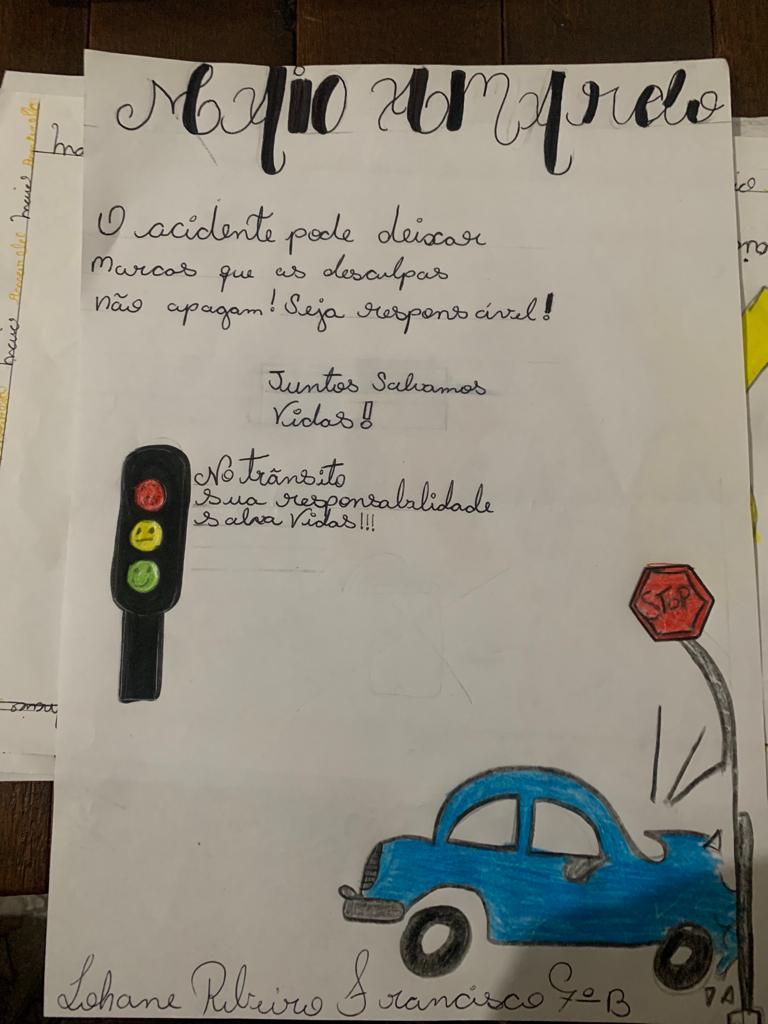 Maio Amarelo
O acidente pode deixar
Marcas que as desculpas
não apagam! Seja responsável!
Juntos Salvamos
Vidas!
No trânsito
sua responsabilidade
salva Vidas!!!
STOP
Lohane Ribeiro Francisco 7º B